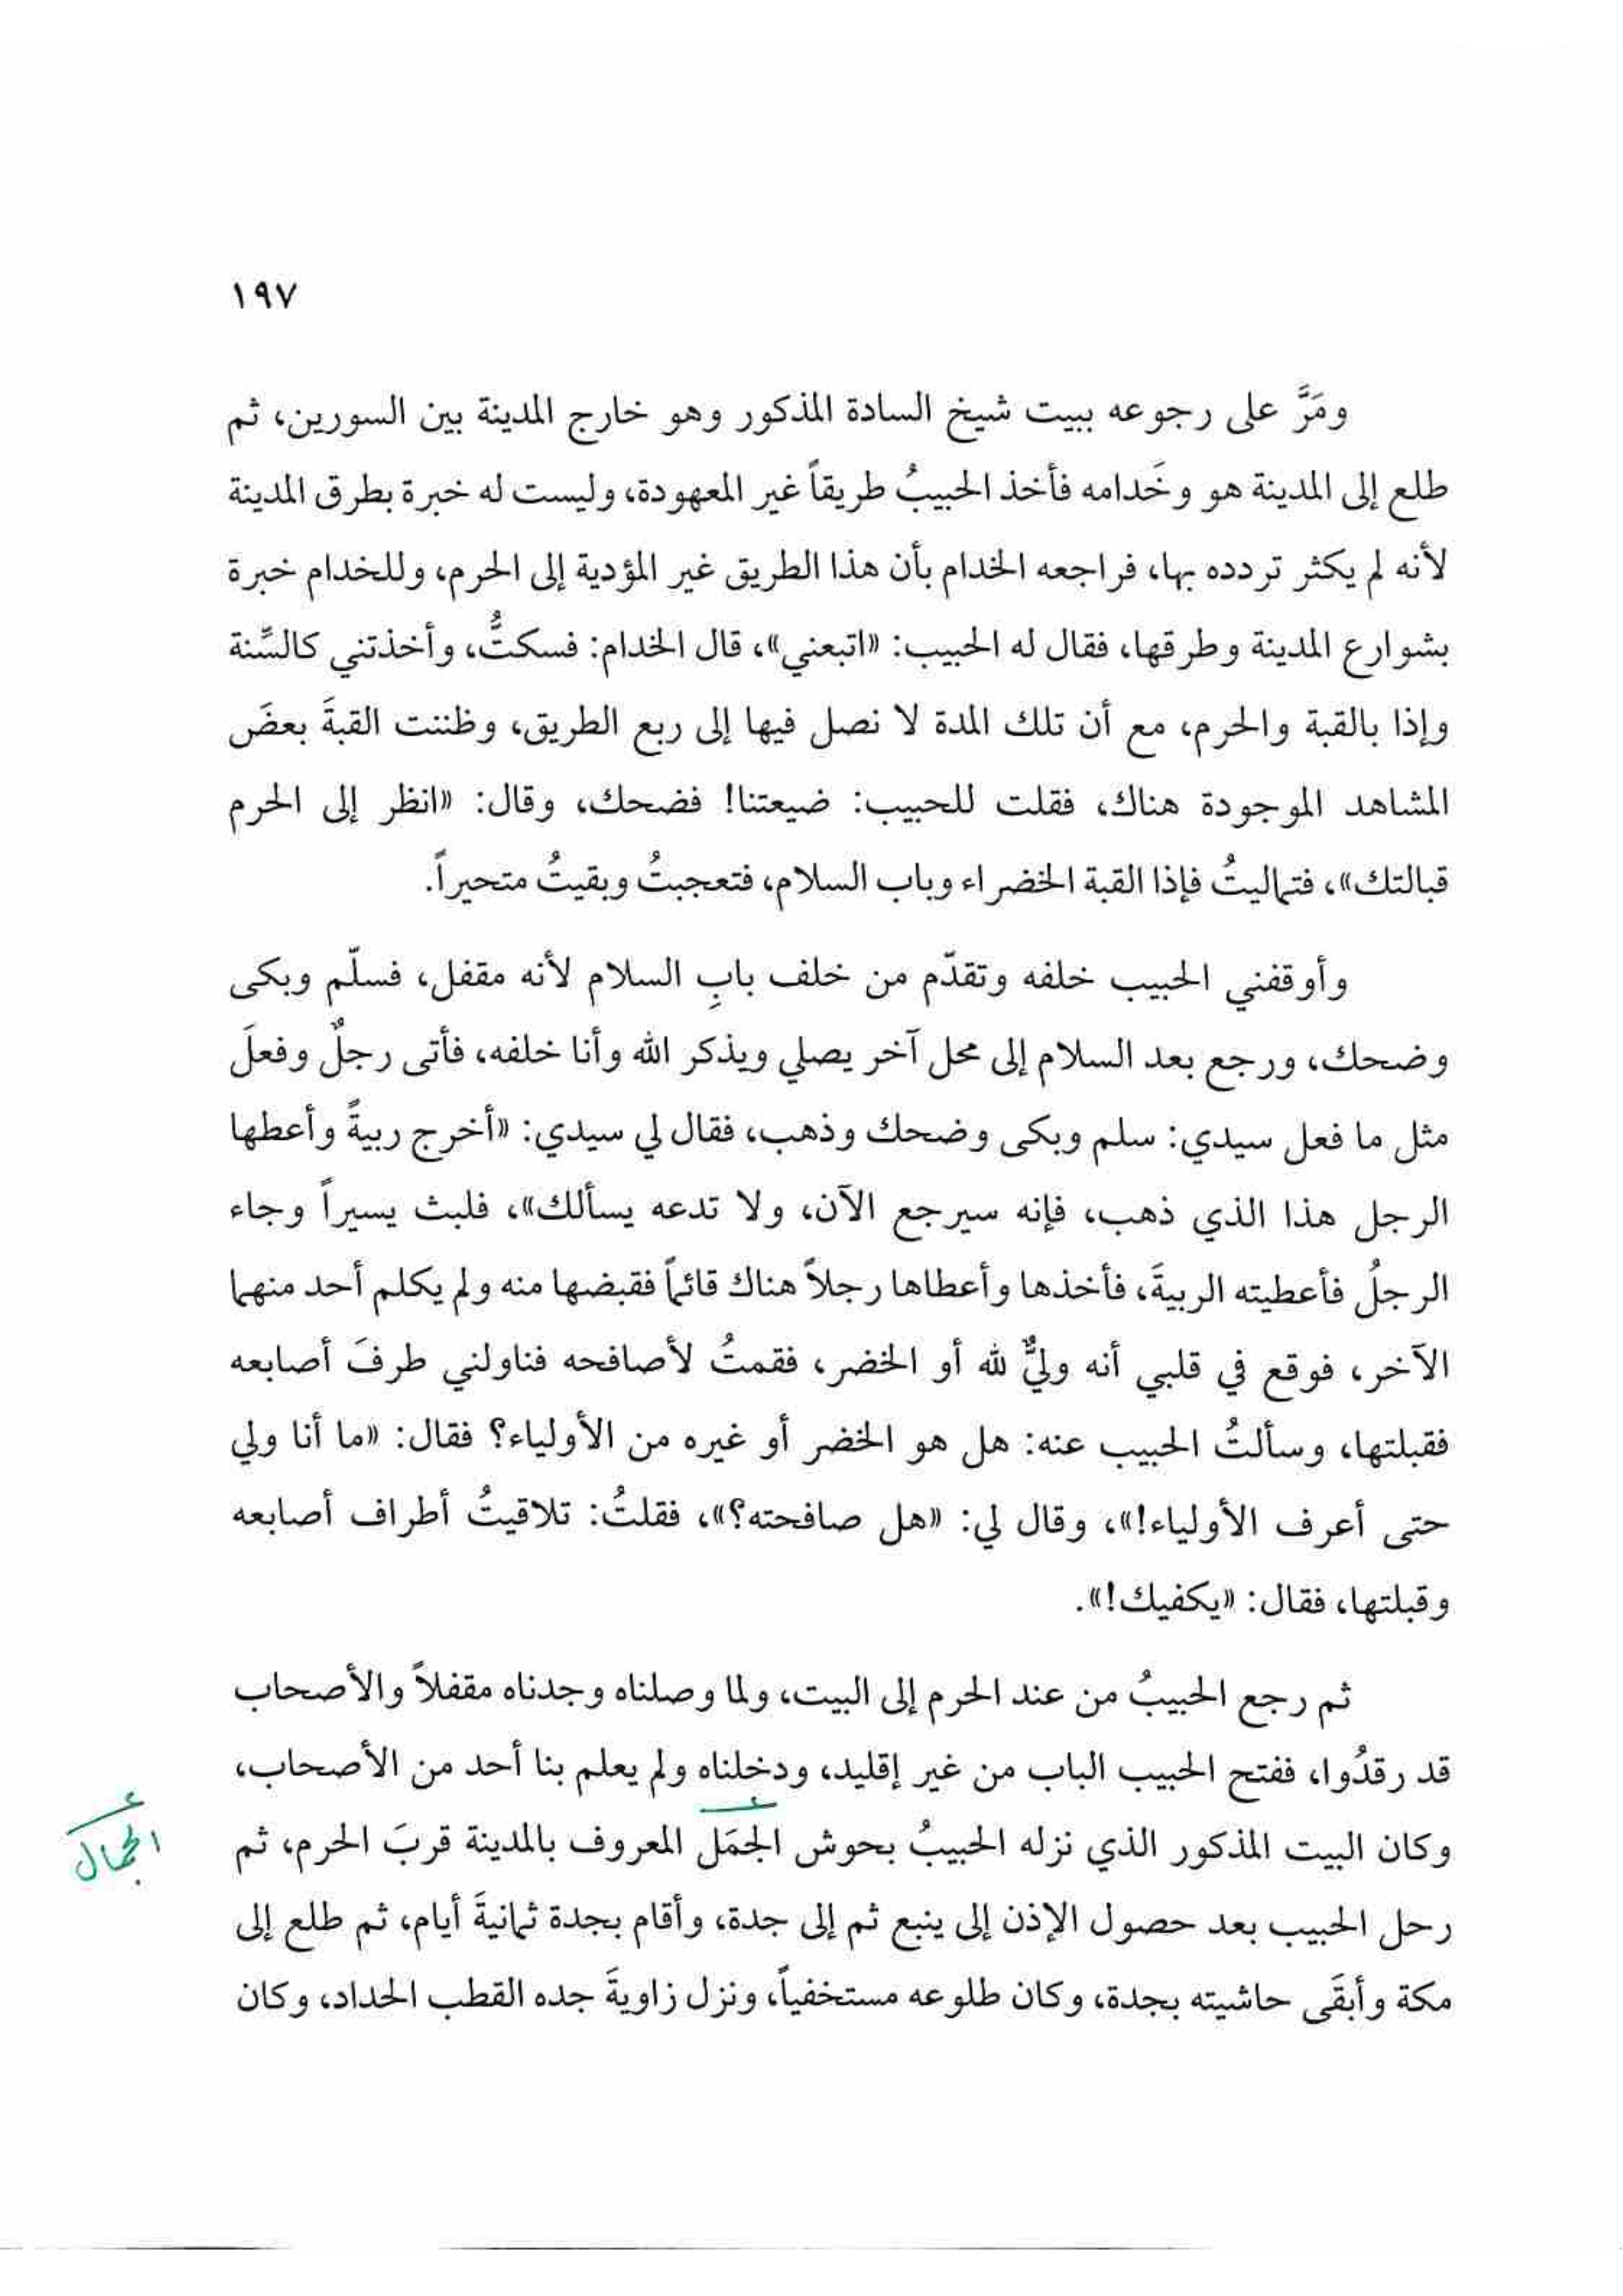 ١٩٧
ومَرَّ على رجوعه ببيت شيخ السادة المذكور وهو خارج المدينة بين السورين، ثم
طلع إلى المدينة هو وخَدامه فأخذ الحبيبُ طريقاً غير المعهودة، وليست له خبرة بطرق المدينة
لأنه لم يكثر تردده بها، فراجعه الخدام بأن هذا الطريق غير المؤدية إلى الحرم، وللخدام خبرة
بشوارع المدينة وطرقها، فقال له الحبيب: «اتبعني»، قال الخدام: فسكتُّ، وأخذتني كالسَِّنة
وإذا بالقبة والحرم، مع أن تلك المدة لا نصل فيها إلى ربع الطريق، وظننت القبةَ بعضَ
المشاهد الموجودة هناك، فقلت للحبيب: ضيعتنا! فضحك، وقال: «انظر إلى الحرم
قبالتك»، فتماليتُ فإذا القبة الخضراء وباب السلام، فتعجبتُ وبقيتُ متحيراً.
وأوقفني الحبيب خلفه وتقدّم من خلف بابِ السلام لأنه مقفل، فسلّم وبكى
وضحك، ورجع بعد السلام إلى محل آخر يصلي ويذكر الله وأنا خلفه، فأتى رجلٌ وفعلَ
مثل ما فعل سيدي: سلم وبكى وضحك وذهب، فقال لي سيدي: «أخرج ربيةً وأعطها
الرجل هذا الذي ذهب، فإنه سيرجع الآن، ولا تدعه يسألك»، فلبث يسيراً وجاء
الرجلُ فأعطيته الربيةَ، فأخذها وأعطاها رجلاً هناك قائماً فقبضها منه ولم يكلم أحد منهما
الآخر، فوقع في قلبي أنه وليٌّ لله أو الخضر، فقمتُ لأصافحه فناولني طرفَ أصابعه
فقبلتها، وسألتُ الحبيب عنه: هل هو الخضر أو غيره من الأولياء؟ فقال: «ما أنا ولي
حتى أعرف الأولياء!»، وقال لي: «هل صافحته؟»، فقلتُ: تلاقيتُ أطراف أصابعه
وقبلتها، فقال: «يكفيك!».
ثم رجع الحبيبُ من عند الحرم إلى البيت، ولما وصلناه وجدناه مقفلاً والأصحاب
قد رقدُوا، ففتح الحبيب الباب من غير إقليد، ودخلناه ولم يعلم بنا أحد من الأصحاب،
وكان البيت المذكور الذي نزله الحبيبُ بحوش الجمَل المعروف بالمدينة قربَ الحرم، ثم
الجمال
رحل الحبيب بعد حصول الإذن إلى ينبع ثم إلى جدة، وأقام بجدة ثمانيةَ أيام، ثم طلع إلى
مكة وأبقَى حاشيته بجدة، وكان طلوعه مستخفياً، ونزل زاويةَ جده القطب الحداد، وكان